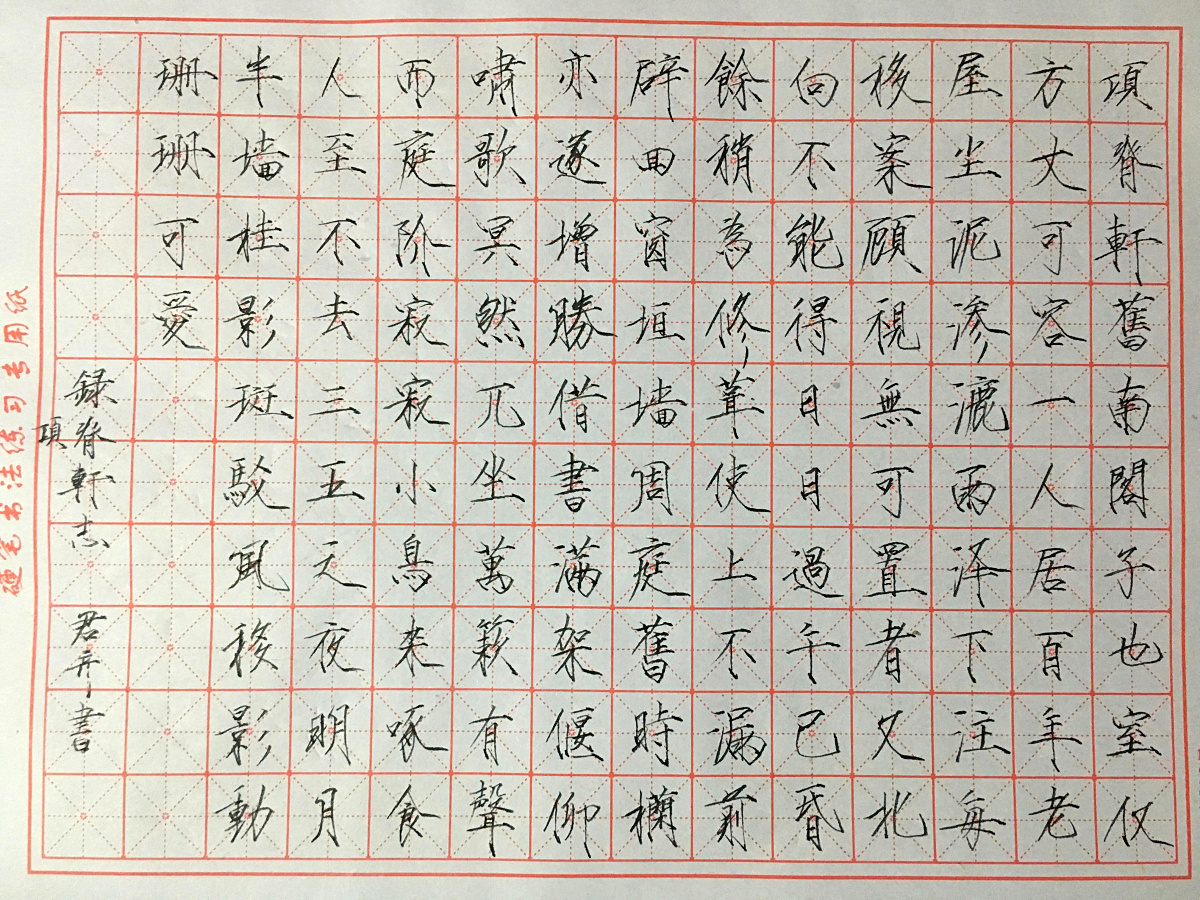 項脊軒舊南閣子也室仅
方丈可容一人居百年老
屋尘泥渗漉雨泽下注每
移案顧視無可置者又北
向不能得日日過午已昏
餘稍為修葺使上不漏前
辟四窗垣墙周庭舊時欄
亦遂增勝借書满架偃仰
啸歌冥然兀坐萬籁有聲
而庭阶寂寂小鳥来啄食
人至不去三五之夜明月
半墙桂影斑駁風移影動
珊珊可愛
録脊軒志
項
君卉書
硬笔书法练习专用纸